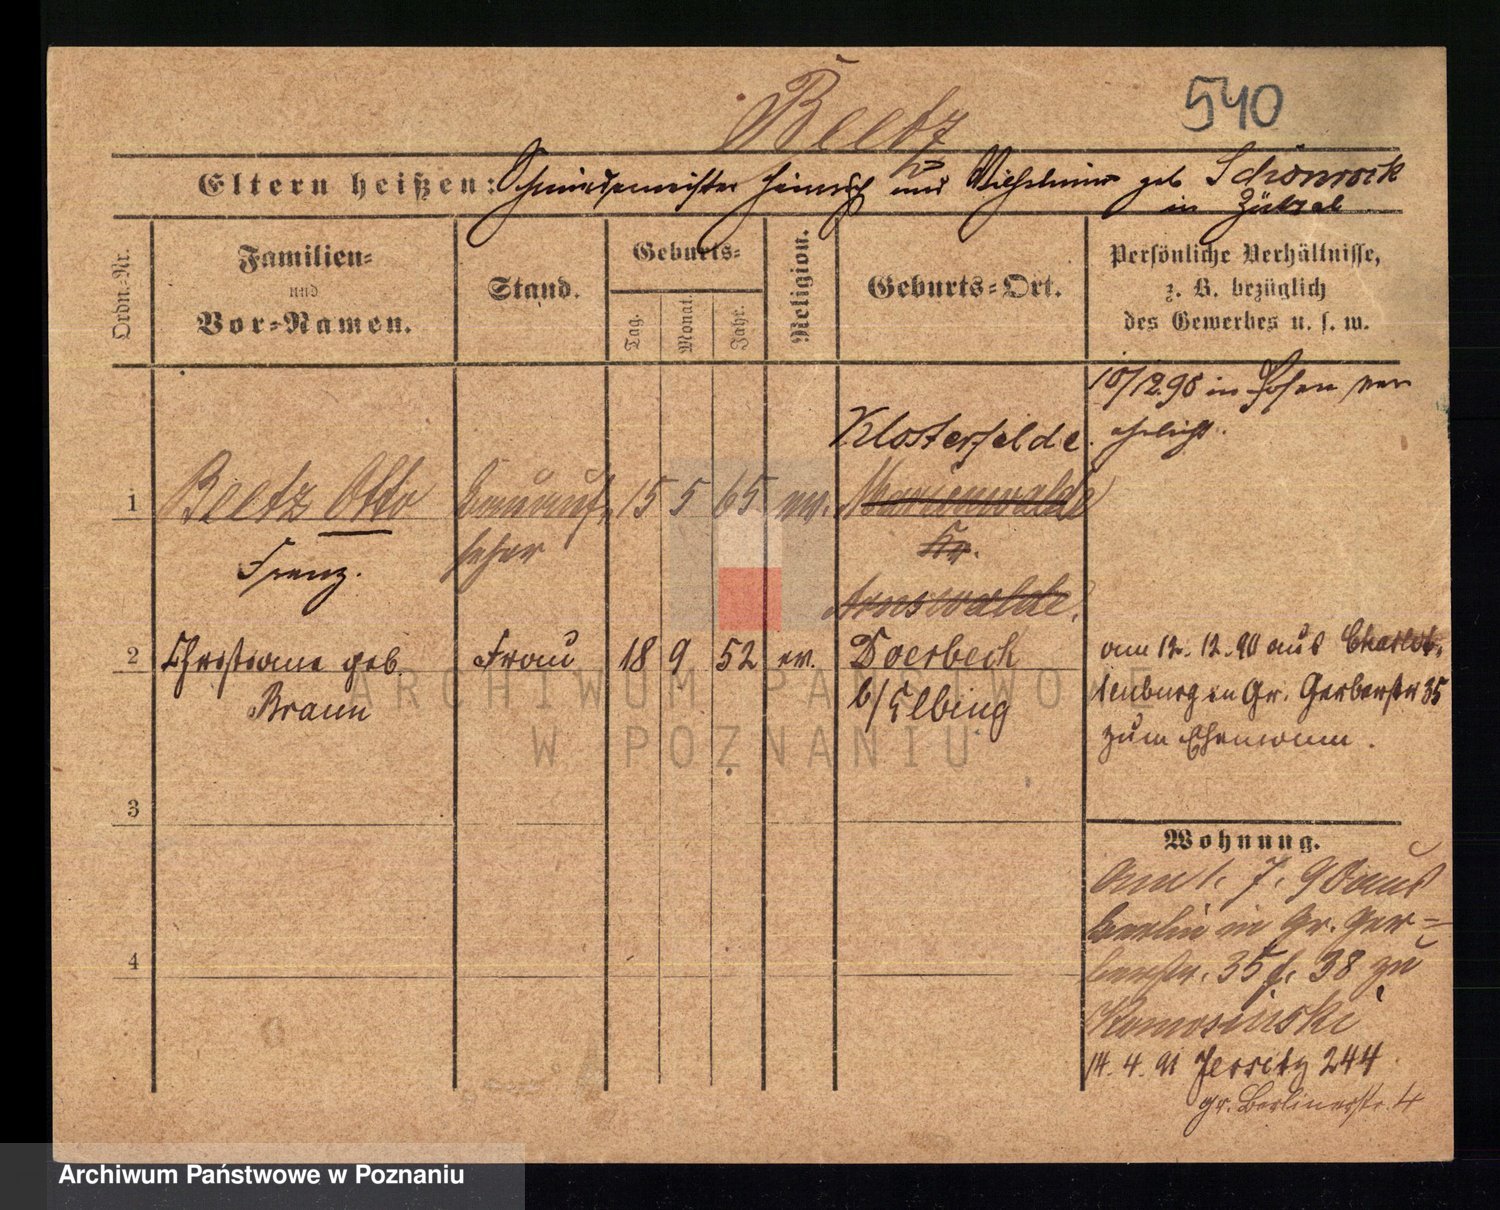 Beetz
540
Eltern heißen: Schmiedemeister Heinrich und Wilhelmine geb Schönrock
in
Ordn.-Nr.
Familien-
und
Vor-Namen.
Stand.
Geburts-
Tag.
Monat.
Jahr.
Religion.
Geburts-Ort.
Persönliche Verhältnisse,
z. B. bezüglich
des Gewerbes u. s. w.
10/12.90 in Posen ver
ehelicht.
Klosterfelde
1 Beetz Otto 15 5 65 ev. Marienwalde
Kr.
Franz.
Arnswalde.
2 Christiane geb. Frau 18 9 52 ev. Doerbeck
Braun b/Elbing
am 12. 12. 90 aus Charlot-
tenburg in Gr. Gerberstr 35
zum Ehemann.
3
4
Wohnung.
am 1. 7. 90 aus
Berlin in Gr. Ger-
berstr. 35 f. 38 zu
14. 4. 91 Jersitz 244
gr. Berlinerstr. 4
ARCHIWUM PAŃSTWOWE
W POZNANIU
Archiwum Państwowe w Poznaniu